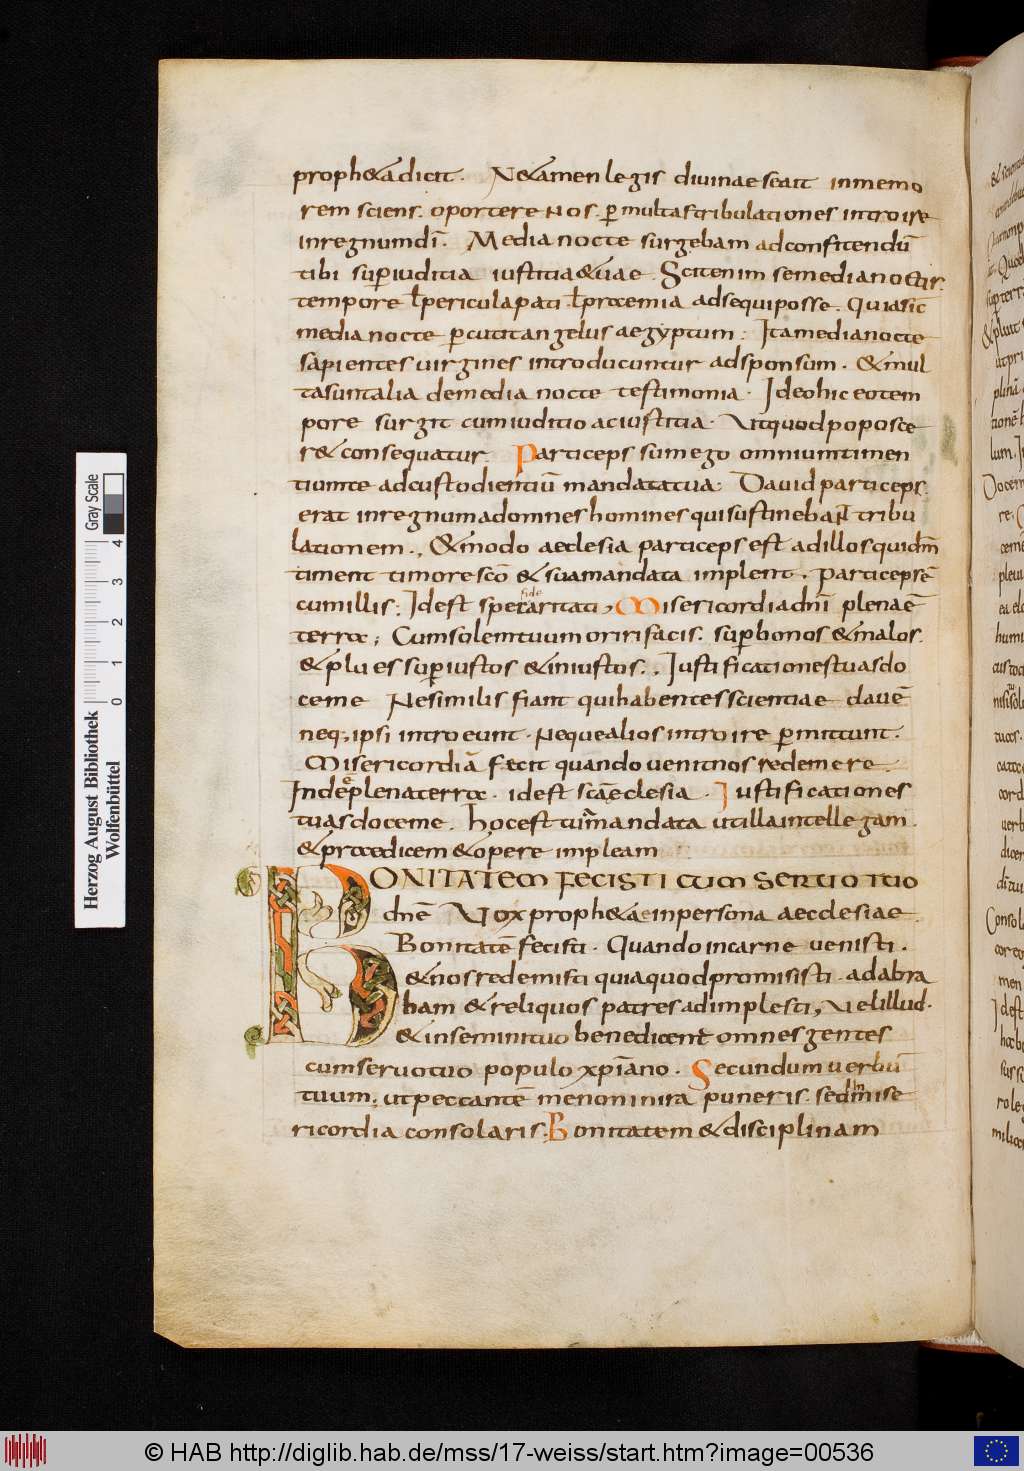 proph&adicit. N&amen legis divinae scait inmemo
rem sciens. oportere nos. p̱ multas tribulationes introire
inregnumdī. Media nocte surgebam adconfitendū
tibi sup̱iuditia iustitia&uae. Scit enim se medianoctis.
tempore ł pericula pati ł proemia adsequi posse. Quia sic
media nocte p̱cutit angelus aegyptum: Ita media nocte
sapientes uirgines introducuntur adsponsum. &mul
ta sunt alia de media nocte testimonia. Ideo hic eo tem
pore surgit cum iuditio ac iustitia. Ut quod poposce
r& consequatur. Particeps sum ego omnium timen
tium te ad custodientiū mandata tua. David particeps.
erat in regnum ad omnes homines qui sustinebant tribu
lationem., &modo aeclesia particeps est ad illos quidm̄
timent timore scō & sua mandata implent. particeps ē
cum illis: Id est spe fide caritati, Misericordia dn̄i plena ē
terra; Cum solem tuum oriri facis. sup̱ bonos & malos.
& pluis sup̱ iustos & iniustos., Iustificationes tuas do
ce me Ne similis fiant qui habentes scientiae clavē
neq; ipsi introeunt. Neque alios introire p̱mittunt.
Misericordiā fecit quando uenit nos redemere.
Inde ē plena terra. id est scā ęclesia. Iustificationes
tuas doce me. hoc est tua mandata ut illa intellegam
& praedicem & opere impleam
BONITATEM FECISTI CUM SERVO TUO
dnē Vox proph&ae in persona aecclesiae.
Bonitatē fecisti. Quando in carne venisti.
& nos redemisti quia quod promisisti. ad abra
ham & reliquos patres adimplesti, Vel illud.
& in semini tuo benedicent omnes gentes
cum servo tuo populo xp̄iano. Secundum verbū
tuum; ut peccantē me non in ira puneris. sed in mise
ricordia consolaris. Bonitatem & disciplinam
Herzog August Bibliothek
Wolfenbüttel
0 1 2 3 4
Gray Scale
© HAB http://diglib.hab.de/mss/17-weiss/start.htm?image=00536